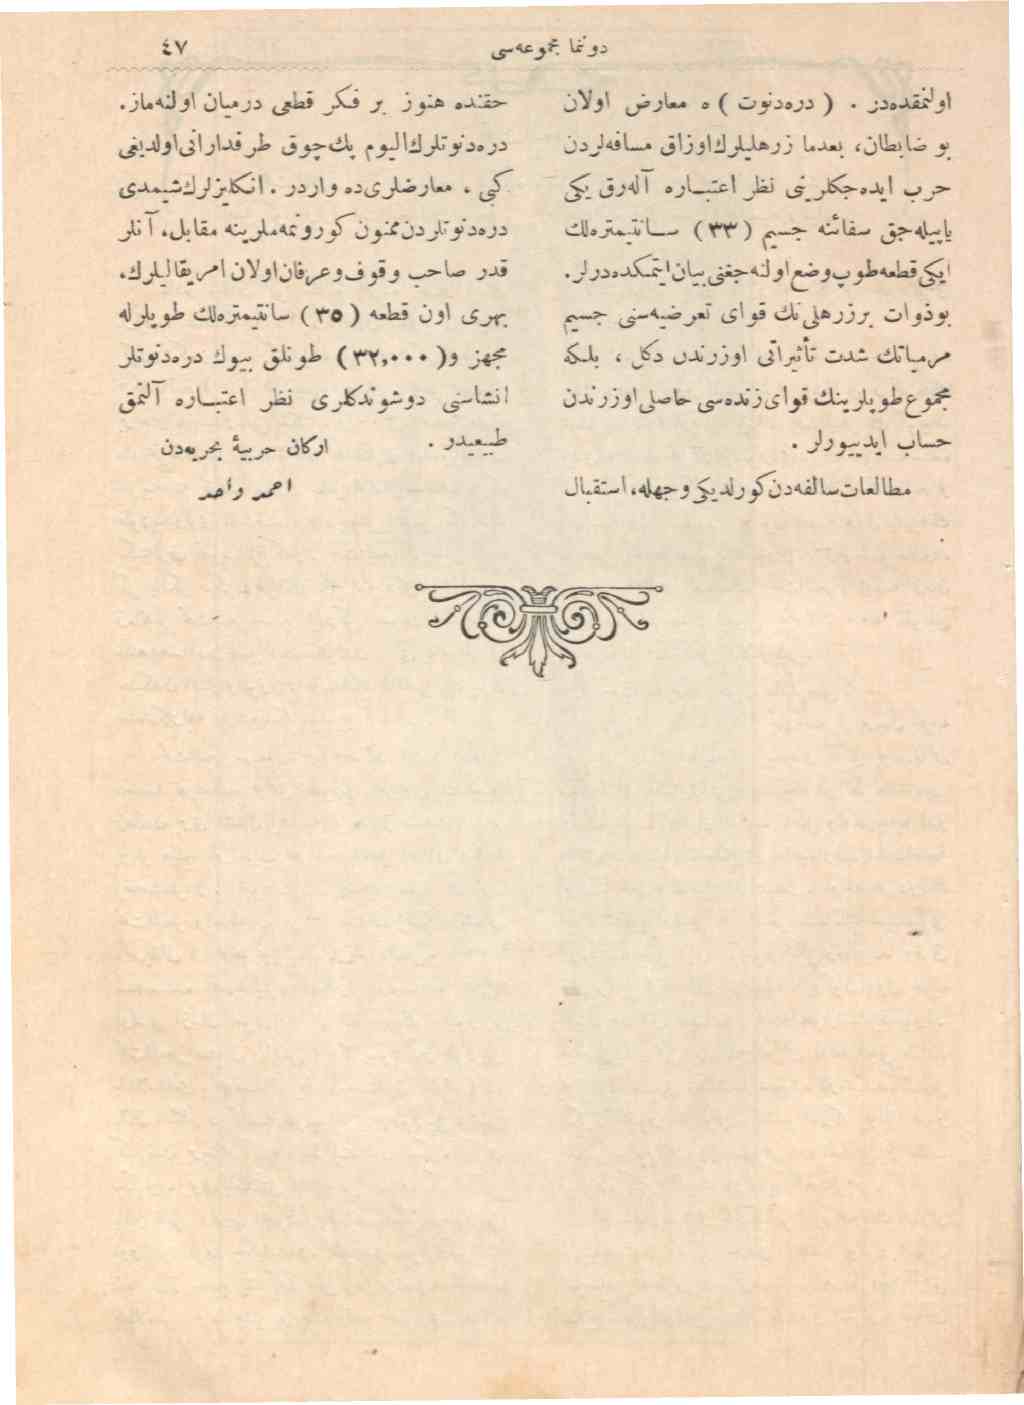 دوننما مجموعه‌سی
٤٧
اولنمقده‌در . ( دره‌دنوت ) ه معارض اولان
بو ضابطان، بعدما زرهلیلرك اوزاق مسافه‌لردن
حرب ایده‌جكلرینی نظر اعتبـاره آله‌رق یكی
یاپیله‌جق سفائنه جسیم (٣٣) سـانتیمتره‌لك
ایكی قطعه طوپ وضع اولنه‌جغنی بیان ایتمكده‌درلر.
بوذوات برزرهلی‌نك قوای تعرضیه‌سنی جسیم
مرمیاتك شدت تأثیراتی اوزرندن دكل ، بلـكه
مجموع طوپلرینك قوای زنده‌سی حاصلی اوزرندن
حساب ایدییورلر .
مطالعات سالفه‌دن كورلدیكی وجهله، استقبال
حقنده هنوز بر فـكر قطعی درمیان اولنه‌ماز.
دره‌دنوتلرك الیوم پك چوق طرفدارانی اولدیغی
كبی ، معارضلری ده واردر . انـكلیزلرك شیـمدی
دره‌دنوتلردن ممنون كورونمه‌ملرینه مقابل، آنلر
قدر صاحب وقوف و عرفان اولان امریقالیلرك،
بهری اون قطعه (٣٥) سانتیمتره‌لك طوپلرله
مجهز و( ٣٢,٠٠٠ ) طونلق بیوك دره‌دنوتلر
انشاسنی دوشوندكلری نظر اعتبـاره آلنمق
طبیعیدر .
اركان حربیهٔ بحریه‌دن
احمد واحد